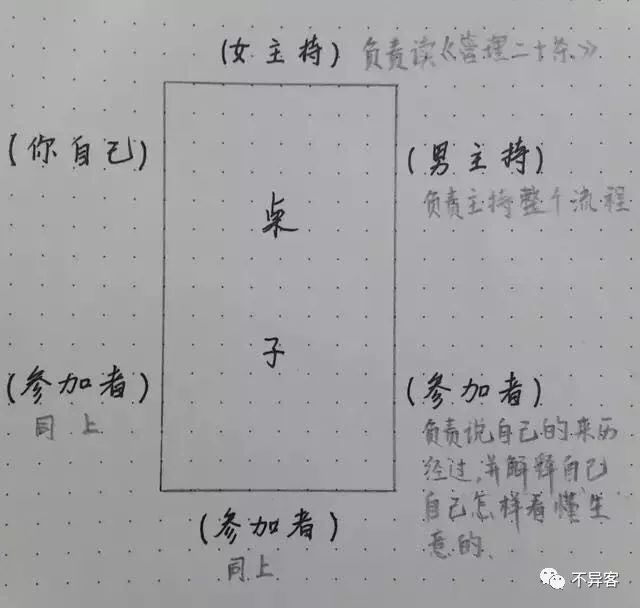 (女主持) 负责读《管理二十条》
(你自己)
(男主持)
负责主持整个流程
桌
子
(参加者)
同上
(参加者)
负责说自己的来历
经过,并解释自己
自己怎样看懂生
意的、
(参加者)
同上
不异客